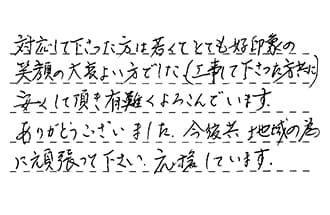 対応して下さった方は若くてとても好印象の
笑顔の大変よい方でした（工事して下さった方共に）
安くして頂き有難くよろこんでいます.
ありがとうございました. 今後共 地域の為
に頑張って下さい. 応援しています.